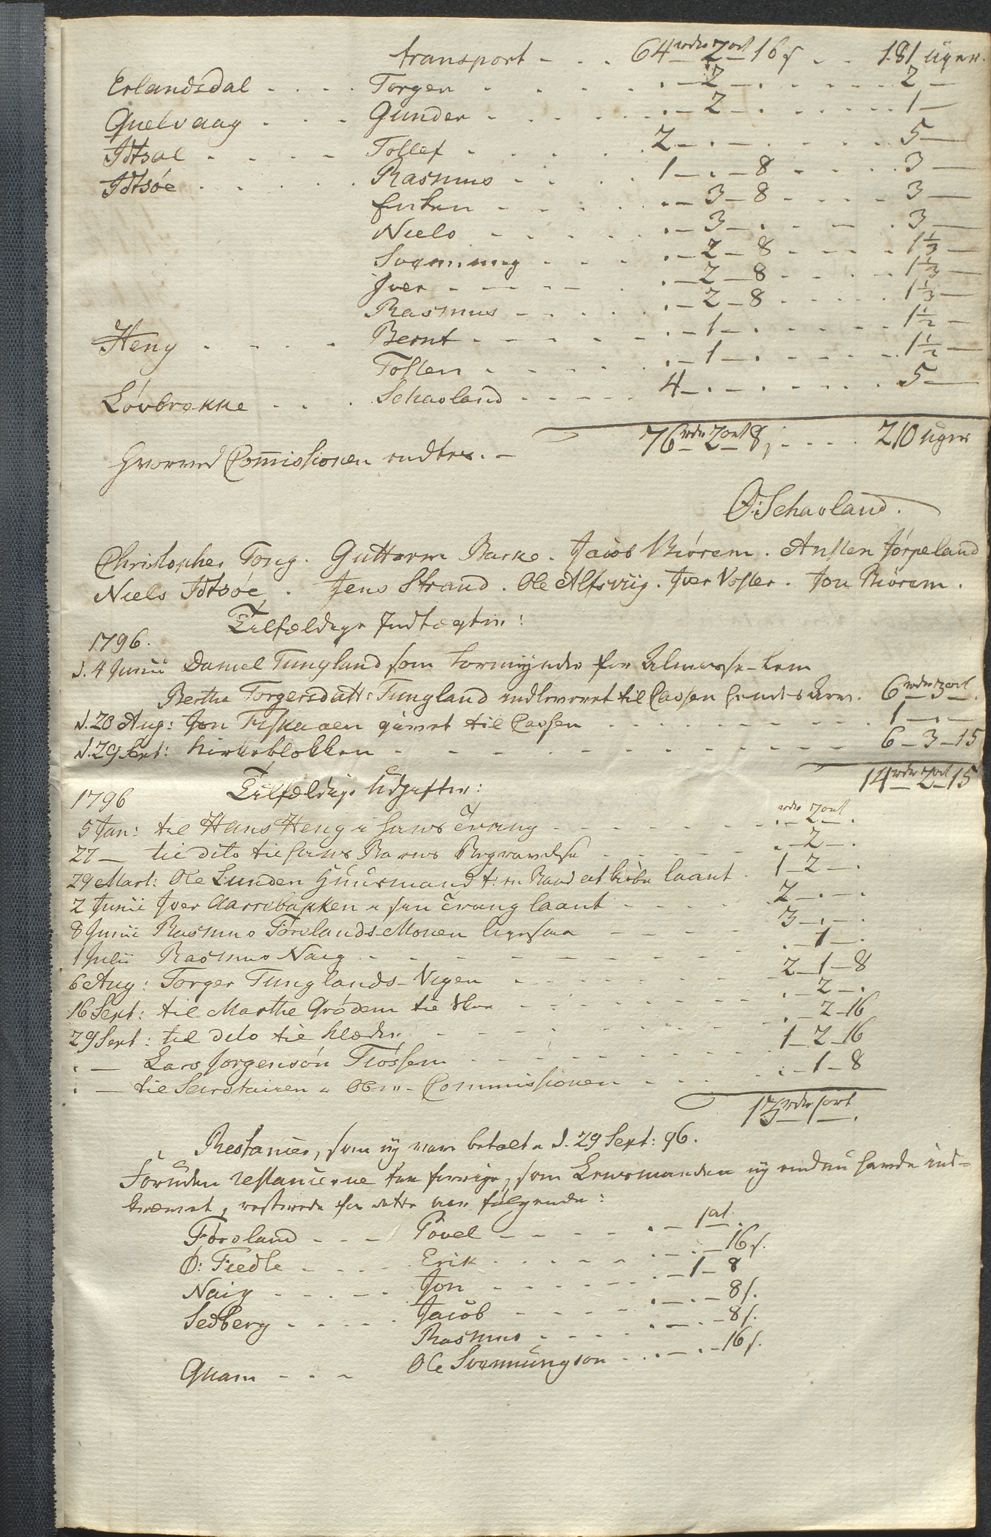 transport - . . 64 rdr 2 ort 16 s . . 181 uger.
Erlandsdal . . . . Torger . . . . . - 2 - . . . . . 2 -
Quelvaag . . . Gunder - . . . . . - 2 - . . . . . 1 -
Idtsal - . . - Tollef . . . . . 2 - . - . . . . . 5 -
Idtsøe . . . . . Rasmus - . . . 1 - . - 8 . . . . 3 -
- . . . . - 3 - 8 - - - . 3 -
Niels . . . . . - 3 - . . . - . 3 -
Svenning . . . . - 2 - 8 - . - . 1 1/3 -
Iver . - - - - . - 2 - 8 - . . . 1 1/3 -
Rasmus - . . . . - 2 - 8 . . . . . 1 1/3 -
Heng . . . . Bernt - . - . - . - 1 - . . . . . . 1 1/2 -
Tosten - . . . . - 1 - . . . . . 1 1/2 -
Løvbrække . . . Schaoland - . . - - 4 - . - . . . . 5 -
76 rdr 2 ort 8 s . . . . 210 uger
Hvorved Commissionen endtes. -
O: Schaoland.
Christopher Tong. Guttorm Barke. Jacob Biørem. Austen Jørpeland
Niels Idtsøe. Jens Strand. Ole Alsvig. Iver Voster. Jon Biørem.
Tilfeldige Indtægter:
1796.
d. 4 Junii Daniel Tungland som Formynder for Almisse-Lem
Berthe Torgersdatt: Tungland indleveret til Cassen hendes 6 rdr 3 ort.
d. 20 Aug: Jon Fiskaaen givet til Cassen . . . . . . . 1 - . - .
d. 29 Sept: Kirkeblokken - - - - - - - - - 6 - 3 - 15
14 rdr 2 ort 15
1796 Tilfeldige Udgifter:
rdr 2 ort
5 Jan: til Hans Heng i hans Trang - - - - - - . - 2 - .
27 - til dito til hans Barns Begravelse - - - - - . - 2 - .
29 Mart: Ole Lunden Huusmand at kiøbe laant . 1 - 2 - .
2 Junii Iver i sin Trang laant - - - - 2 - . - .
8 Junii Rasmus Førelands-Monen ligesaa - - - - 3 - . - .
1 Julii Rasmus Naig - - - - - - - - . - 1 - .
6 Aug: Torger Tunglands-Vigen - . . . . . . 2 - 1 - 8
16 Sept: til Marthe Grødem til Skoe - - - - - - . - 2 - .
29 Sept: til dito til Klæder - - - - - - - . - 2 - 16
. - Lars Jørgensøn Tiøssem - - - - - - - 1 - 2 - 16
. - til Secretairen Commissionen - . . . . - 1 - 8
13 rdr 1 ort
Restancer, som ej vare betalte d. 29 Sept: 96.
Foruden restancerne fra forrige, som Lensmanden ej endnu havde ind-
krævet, resterede for dette aar følgende:
Føroland - - - Povel - - - - . - 1 ort.
O: Fiedle - . . . . Erik . . . - - . - . - 16 s.
Naig - - . . - - Jon - - - - - . - 1 - 8
Sedberg - . . . . Jacob - - - - . - . - 8 s.
Rasmus - - - - . - . - 8 s.
Quam - - - Ole Svenningson - . . - . - 16 s.